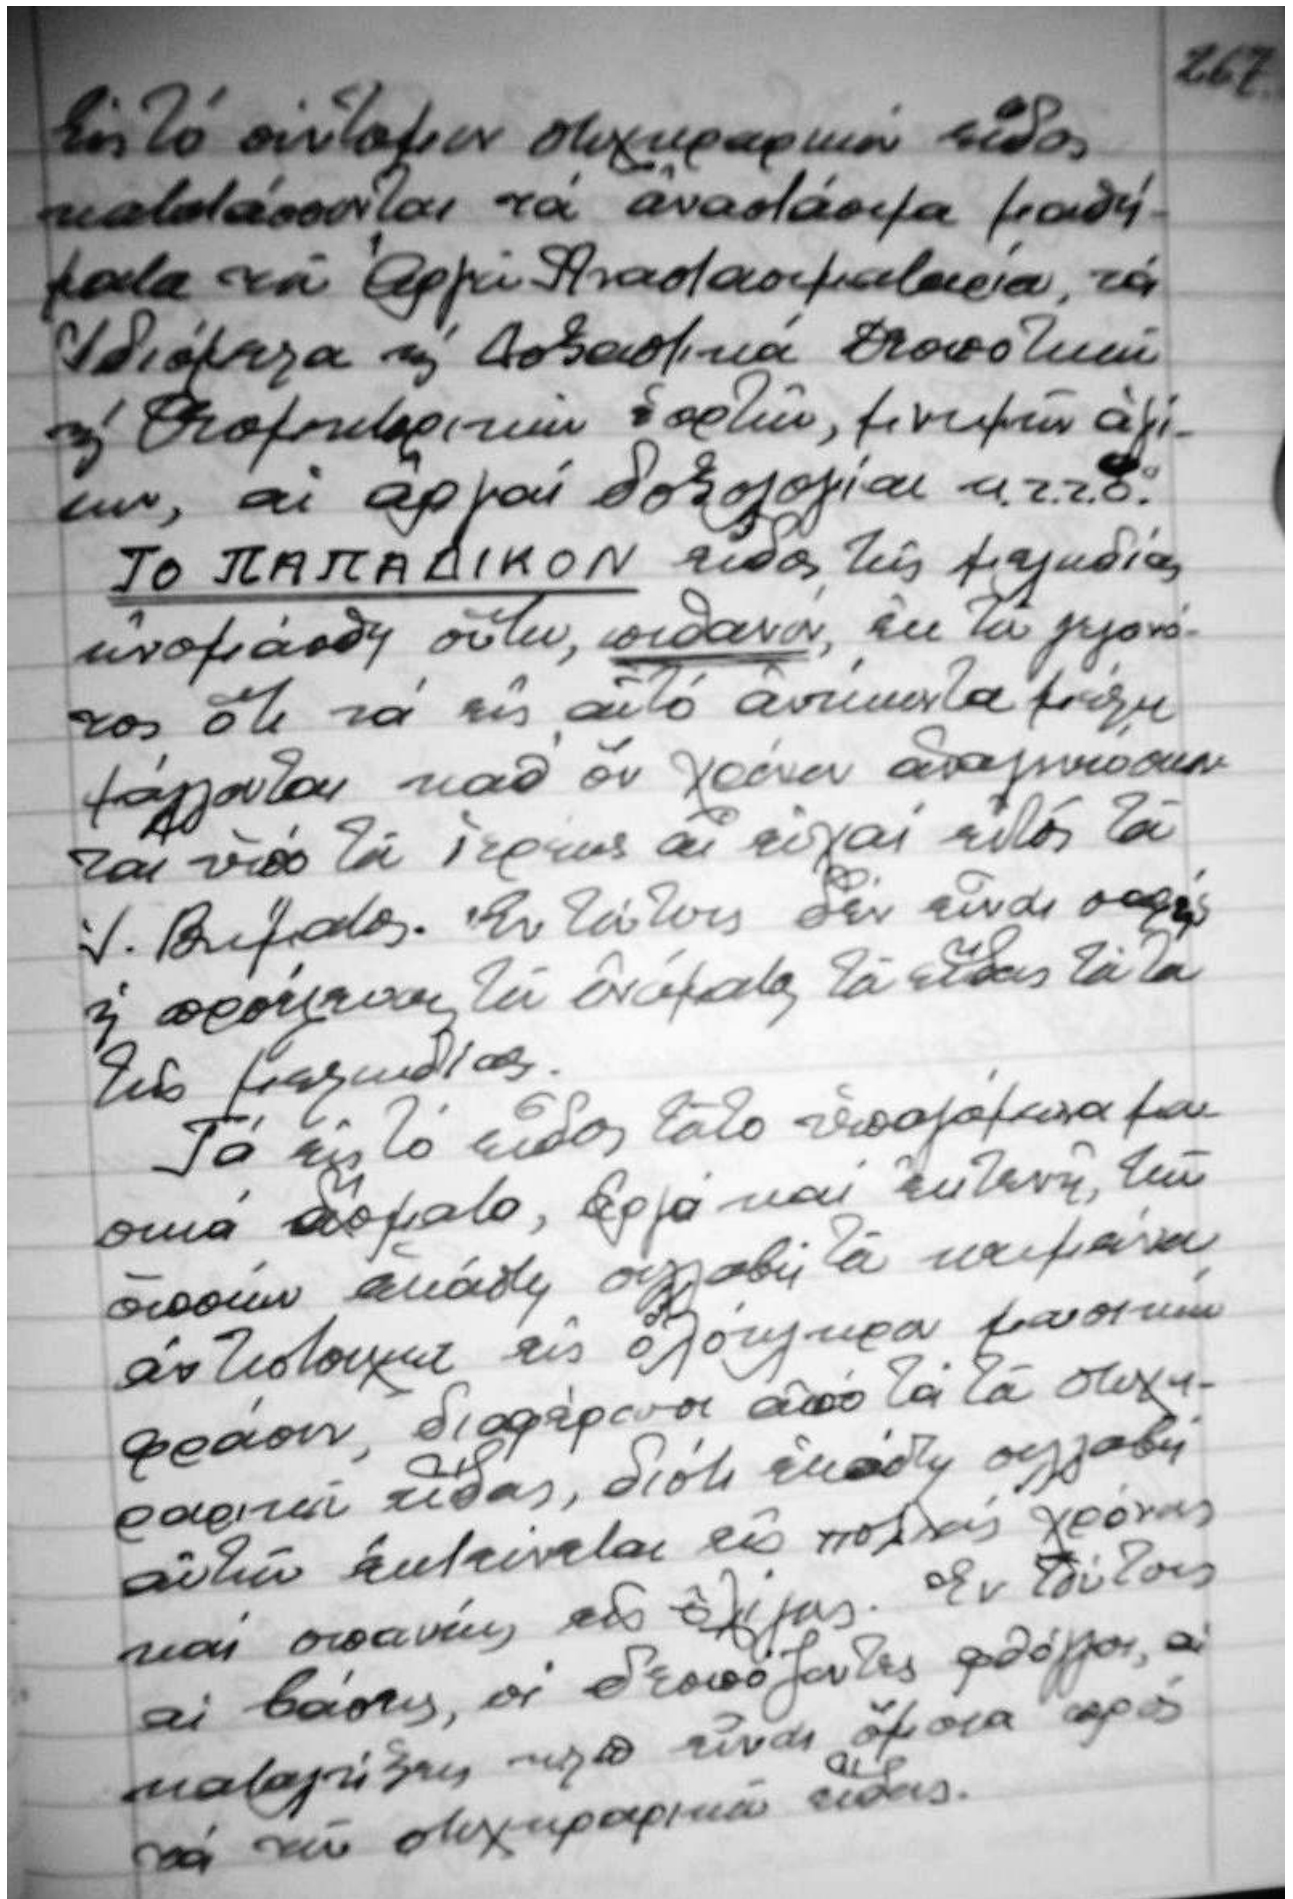 267.
Εἰς τό σύντομον στιχηραρικόν εἶδος
κατατάσσονται τά ἀναστάσιμα μαθή-
ματα τοῦ Ἀργοῦ Ἀναστασιματαρίου, τά
Ἰδιόμελα καί Δοξαστικά Δεσποτικῶν
καί Θεομητορικῶν ἑορτῶν, μνημῶν ἁγί-
ων, αἱ ἀργαί δοξολογίαι κ.τ.τ.ὅ.
ΤΟ ΠΑΠΑΔΙΚΟΝ εἶδος τῆς μελῳδίας
ὠνομάσθη οὕτω, πιθανόν, ἐκ τοῦ γεγονό-
τος ὅτι τά εἰς αὐτό ἀνήκοντα μέλη
ψάλλονται καθ' ὅν χρόνον ἀναγινώσκον-
ται ὑπό τοῦ ἱερέως αἱ εὐχαί ἐντός τοῦ
Ἱ. Βήματος. Ἐν τούτοις δέν εἶναι σαφής
ἡ προέλευσις τοῦ ὀνόματος τοῦ εἴδους τούτου
τῆς μελῳδίας.
Τά εἰς τό εἶδος τοῦτο ὑπαγόμενα μου-
σικά ᾄσματα, ἀργά καί ἐκτενῆ, τῶν
ὁποίων ἑκάστη συλλαβή τοῦ κειμένου
ἀντιστοιχεῖ εἰς ὁλόκληρον μουσικήν
φράσιν, διαφέρουσι ἀπό τά τοῦ στιχη-
ραρικοῦ εἴδους, διότι ἑκάστη συλλαβή
αὐτῶν ἐκτείνεται εἰς πολλούς χρόνους
καί σπανίως εἰς ὀλίγους. Ἐν τούτοις
αἱ βάσεις, οἱ δεσπόζοντες φθόγγοι, αἱ
καταλήξεις κλπ εἶναι ὅμοια πρός
τά τοῦ στιχηραρικοῦ εἴδους.